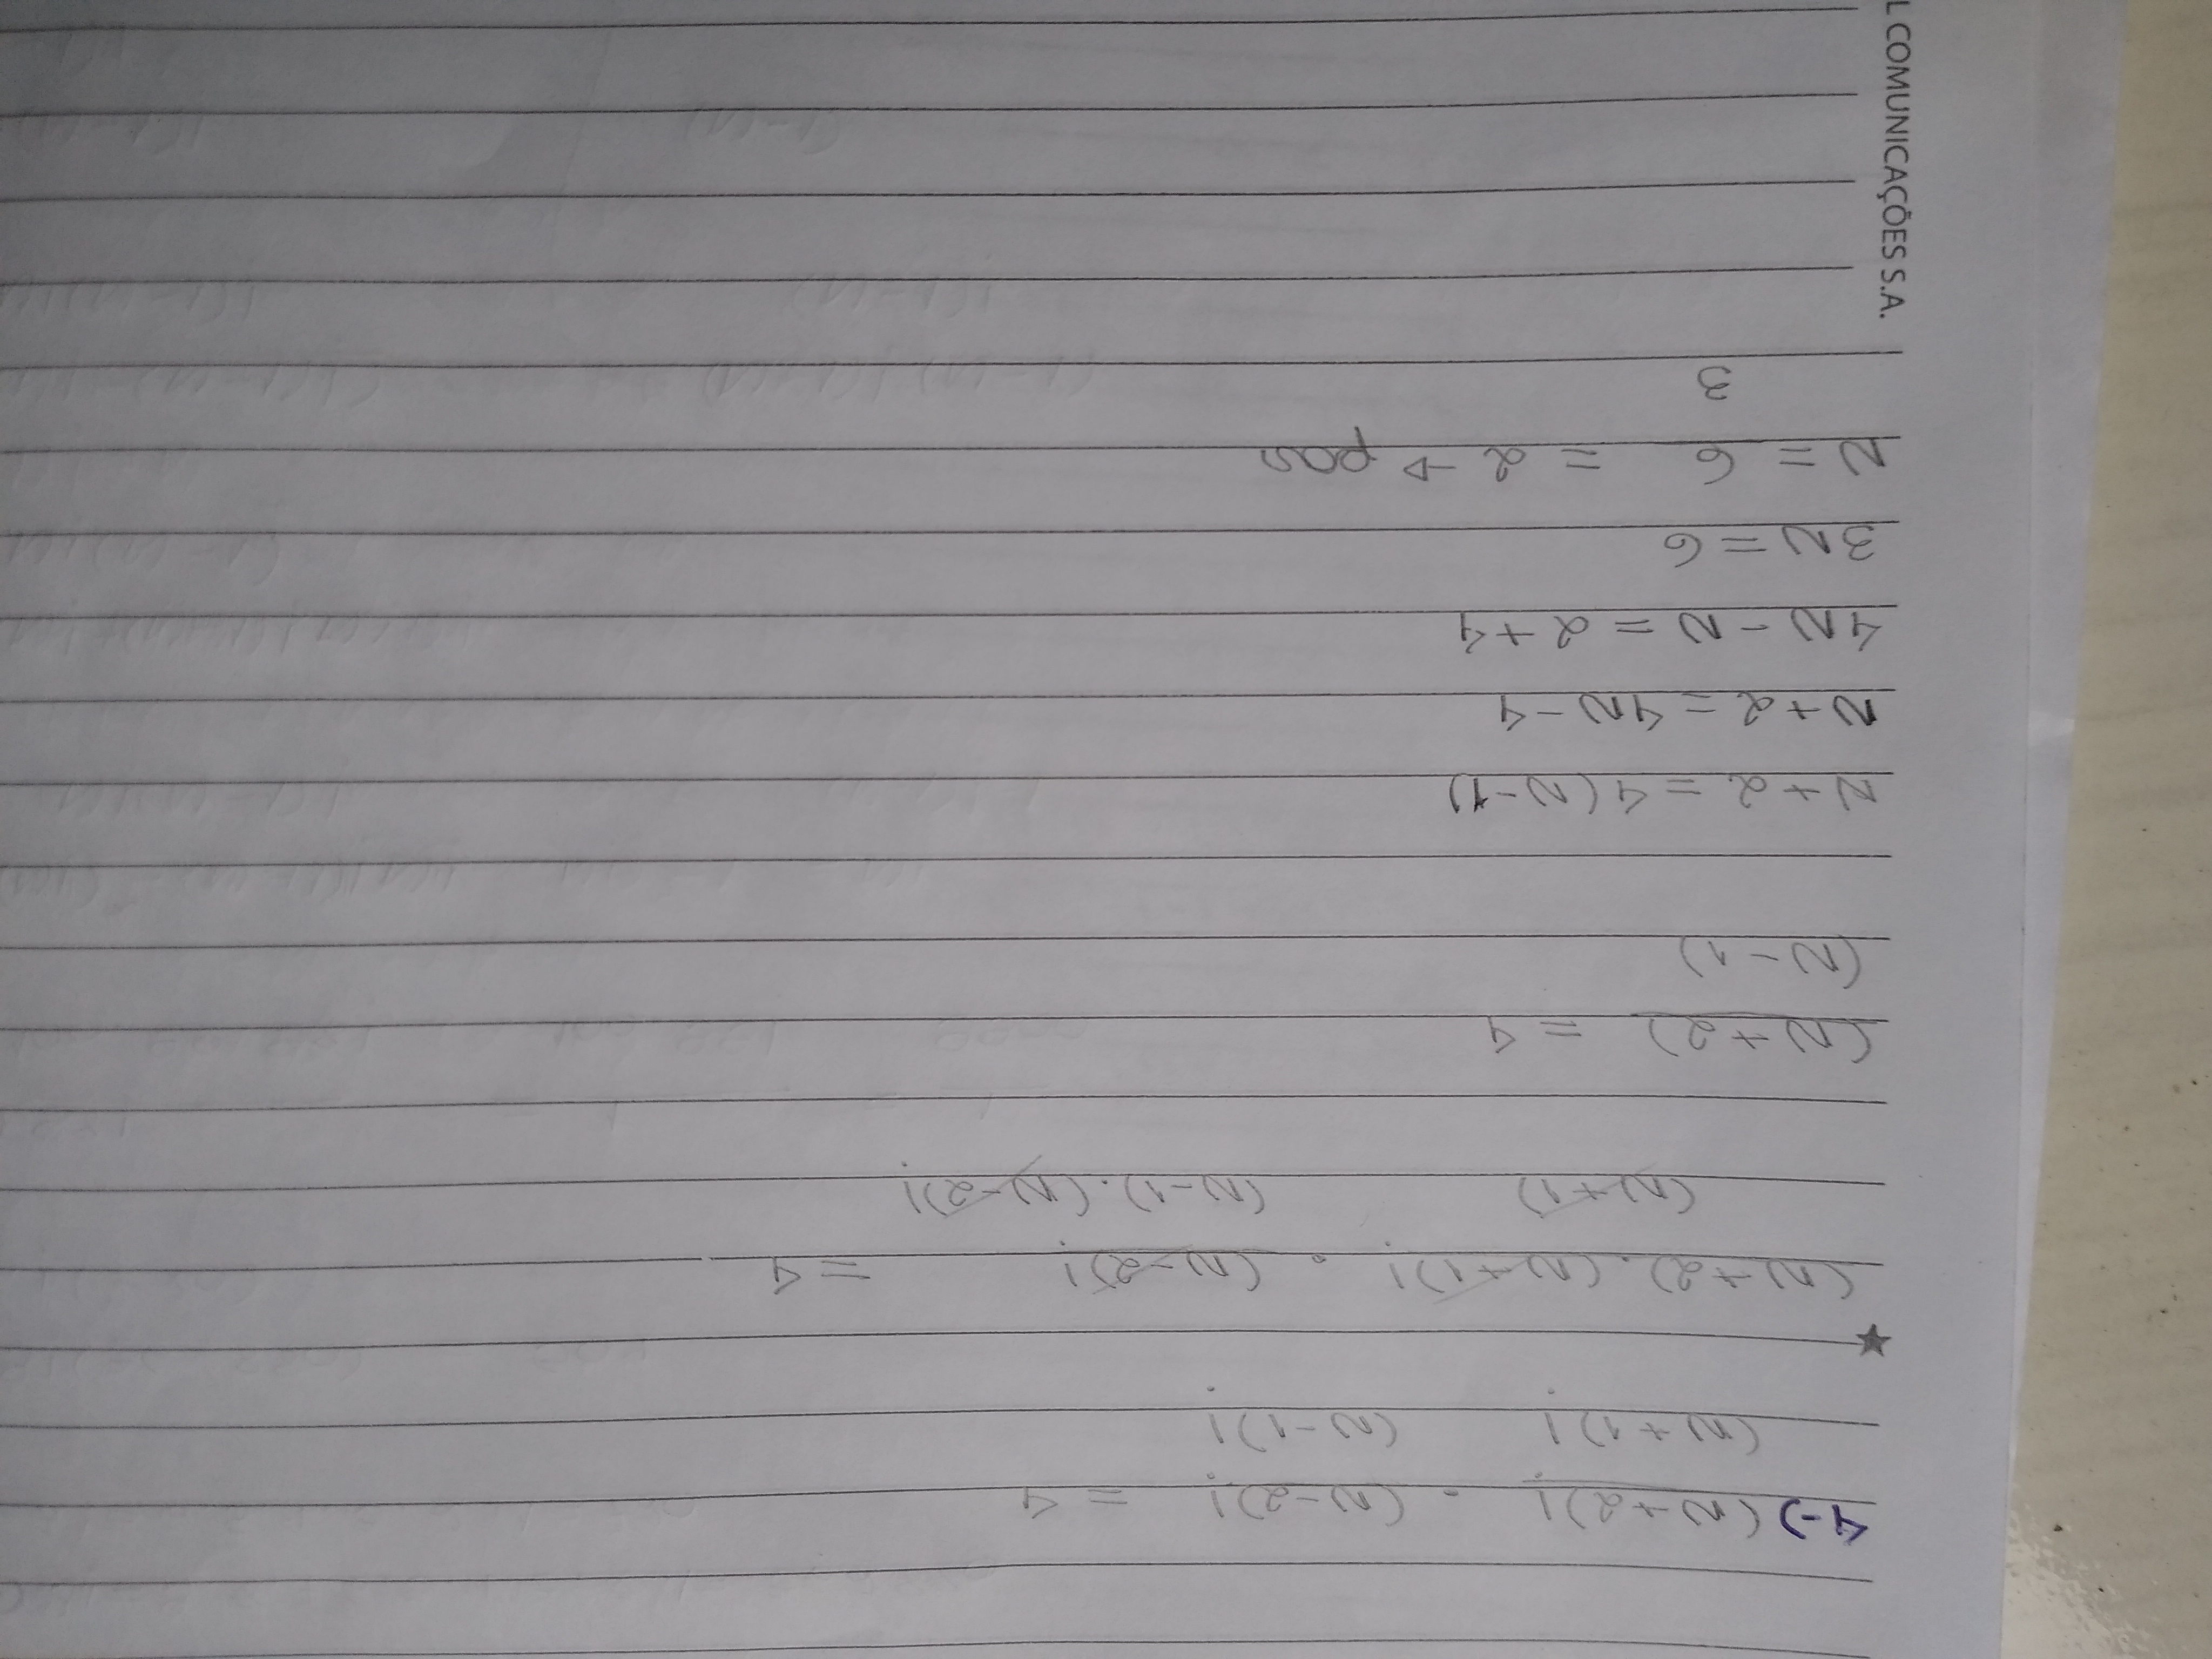 4-) (N+2)! . (N-2)! = 4
(N+1)! (N-1)!
(N+2).(N+1)! . (N-2)! = 4
(N+1) (N-1).(N-2)!
(N+2) = 4
(N-1)
N+2=4(N-1)
N+2=4N-4
4N-N=2+4
3N=6
N = 6 = 2 → par
3
L COMUNICAÇÕES S.A.